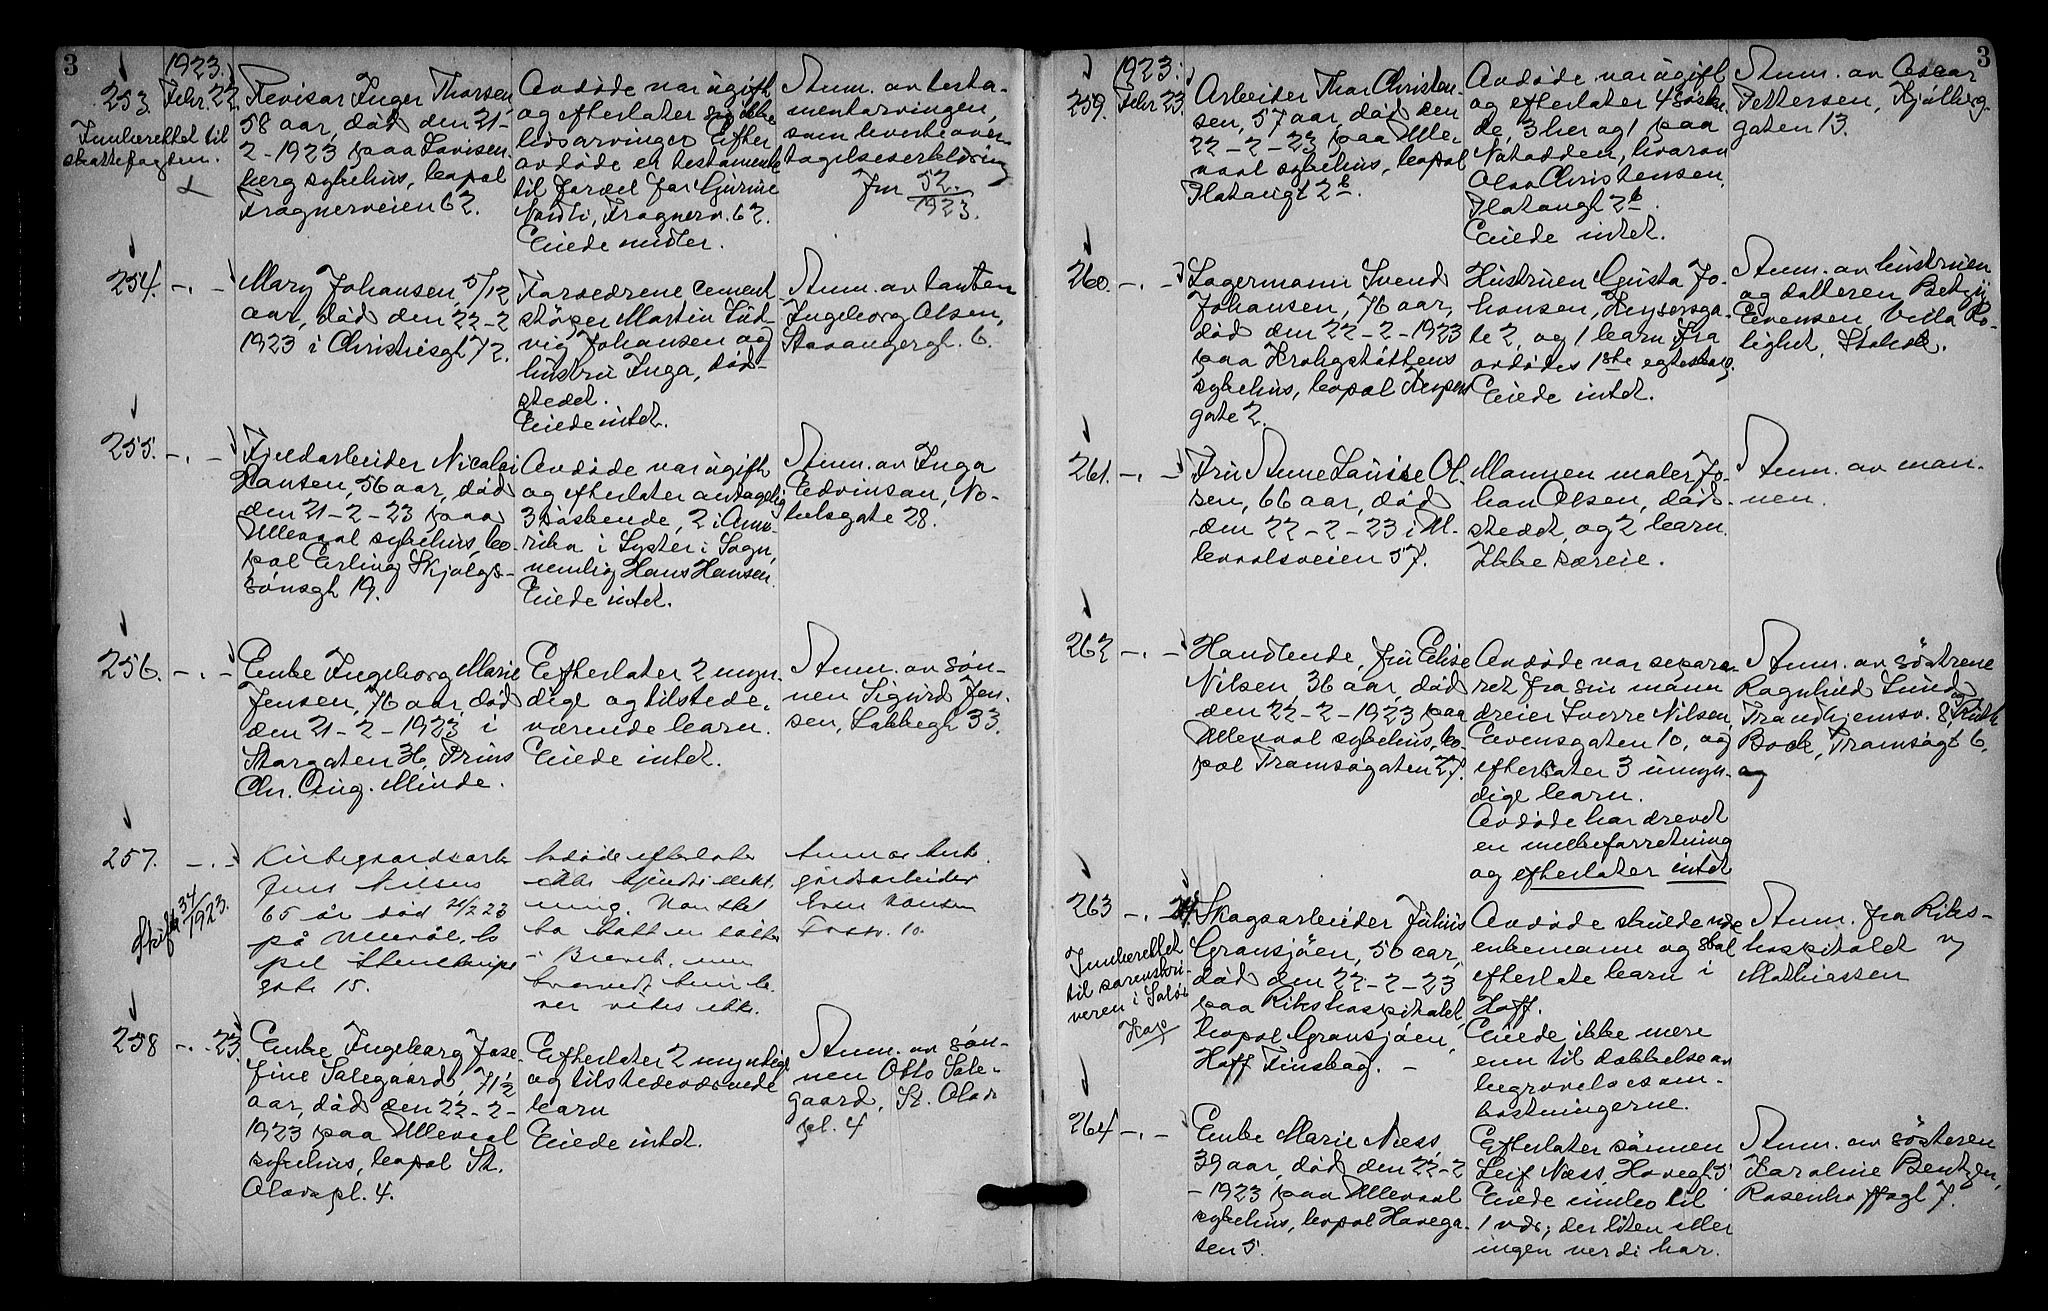 3
1923.
253. Febr. 22.
Indberettet til
skattefogden.
Revisor Inger Thorsen
58 aar, død den 21-
2-1923 paa Lovisen-
berg sykehus, bopæl
Frognerveien 62.
Avdøde var ugift
og efterlater sig ikke
livsarvinger. Efter
avdøde et testamente
til fordel for Gurine
Nordli, Frognerv. 62.
Eiede midler.
Anm. av testa-
mentarvingen,
som leverte over-
tagelseserklæring
Jnr 52.
1923.
254. -.-
Mary Johansen, 5/12
aar, død den 22-2
1923 i Christiesgt 72.
Forældrene cement
støper Martin Lud-
vig Johansen og
hustru Inga, død-
stedet.
Eiede intet.
Anm. av tanten
Ingeborg Olsen,
Stavangergt. 6.
255. -.-
Fjeldarbeider Nicolai
Hansen, 56 aar, død
den 21-2-23 paa
Ullevaal sykehus, bo-
pæl Erling Skjalgs-
sønsgt 19.
Avdøde var ugift
og efterlater antagelig
3 søskende, 2 i Ame-
rika i Lyster i Sogn,
nemlig Hans Hansen.
Eiede intet.
Anm. av Inga
Edvinsen, No-
belsgate 28.
256. -.-
Enke Ingeborg Marie
Jensen, 76 aar, død
den 21-2-1923 i
Storgaten 36, Prins
Chr. Aug. Minde.
Efterlater 2 myn-
dige og tilstede-
værende barn.
Eiede intet.
Anm. av søn-
nen Sigurd Jen-
sen, Lakkegt 33.
257. -.-
Skifte 34/1923.
Kirkegaardsarb.
Jens Nilsen
65 år død 21/2 23
på Ullevål, bo
pæl Stenstrups
gate 15.
Avdøde efterlater
ikke kjendt slekt-
ning. Han skal
ha hatt en søster
i Brevik, men
hvorvidt hun le-
ver vites ikke.
Anm av kirke-
gårdsarbeider
Even Hansen
Fossv. 10
258 -.- 23.
Enke Ingeborg Jose-
fine Salegaard, 71 1/2
aar, død den 22-2-
1923 paa Ullevaal
sykehus, bopæl St.
Olavspl. 4.
Efterlater 2 myndige
og tilstedeværende
barn
Eiede intet.
Anm. av søn-
nen Otto Sale-
gaard, St. Olavs
pl. 4
3
1923.
259. Febr. 23.
Arbeider Thor Christen-
sen, 57 aar, død den
22-2-23 paa Ulle-
vaal sykehus, bopæl
Platougt 2b.
Avdøde var ugift
og efterlater 4 søsken-
de, 3 her og 1 paa
Notodden, hvorav
Olav Christensen,
Platougt 2b.
Eiede intet.
Anm. av Oscar
Pettersen, Kjølberg-
gaten 13.
260. -.-
Lagermann Svend
Johansen, 76 aar,
død den 22-2-1923
paa Krohgstøttens
sykehus, bopæl Keysers
gate 2.
Hustruen Gusta Jo-
hansen, Keysersga-
te 2, og 1 barn fra
avdødes 1ste egteskap.
Eiede intet.
Anm. av hustruen
og datteren Betzy
Evensen, Villa Ro-
lighet, Stabek.
261. -.-
Fru Anne Louise Ol-
sen, 66 aar, død
den 22-2-23 i Ul-
levaalsveien 57.
Mannen maler Jo-
han Olsen, død-
stedet, og 2 barn.
Ikke særeie.
Anm. av man-
nen.
262 -.-
Handlende, fru Elise
Nilsen, 36 aar, død
den 22-2-1923 paa
Ullevaal sykehus, bo-
pæl Tromsøgaten 27.
Avdøde var separe-
ret fra sin mann
dreier Sverre Nilsen,
Evensgaten 10, og
efterlater 3 umyn-
dige barn.
Avdøde har drevet
en melkeforretning
og efterlater intet
Anm. av søstrene
Ragnhild Lund,
Trondhjemsv. 8, og Ruth
Bock, Tromsøgt 6,
og
263 -.- 24.
Indberettet
til sorenskri-
veren i Solør
Kop
Skogsarbeider Julius
Gransjøen, 50 aar,
død den 22-2-23
paa Rikshospitalet,
bopæl Gransjøen,
Hoff Finskog. -
Avdøde skulde være
enkemann og skal
efterlate barn i
Hoff.
Eiede ikke mere
enn til dækkelse av
begravelsesom-
kostningerne.
Anm. fra Riks-
hospitalet v
Mathiassen
264 -.-
Enke Marie Næss,
39 aar, død den 22-2
-1923 paa Ullevaal
sykehus, bopæl Havega-
ten 5.
Efterlater sønnen
Leif Næss, Havegt. 5
Eiede innbo til
1 vær; der liten eller
ingen verdi har.
Anm. av søsteren
Karoline Bentzen,
Rosenhoffgt 7.